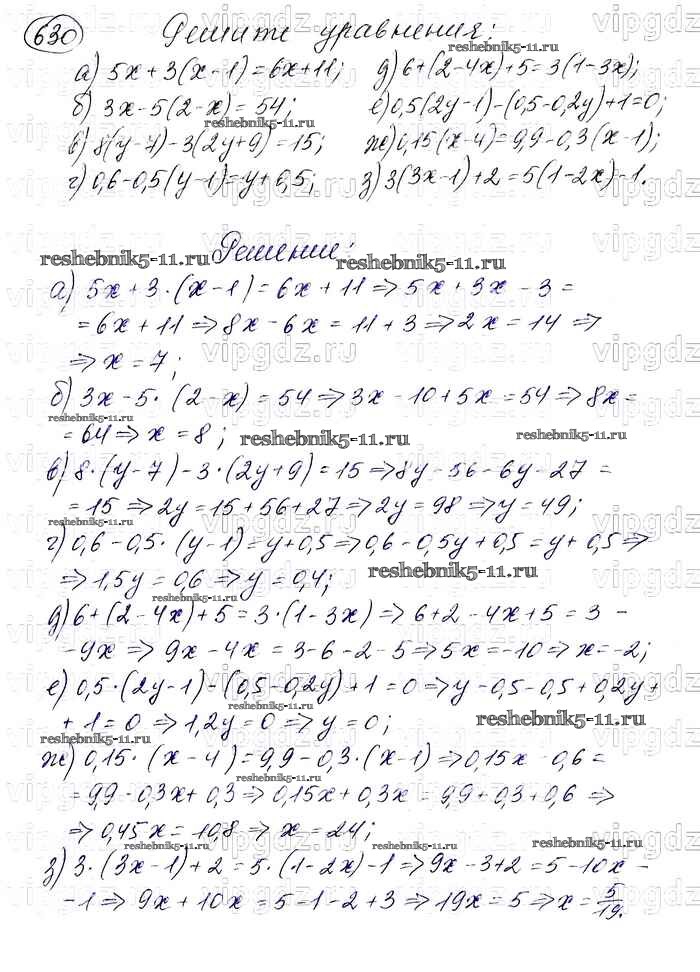 630 Решите уравнения:
а) 5x + 3(x-1) = 6x+11; д) 6+(2-4x)+5 = 3(1-3x);
б) 3x-5(2-x) = 54; е) 0,5(2y-1)-(0,5-0,2y)+1=0;
в) 8(y-7)-3(2y+9) = 15; ж) 0,15(x-4) = 9,9-0,3(x-1);
г) 0,6-0,5(y-1) = y+0,5; з) 3(3x-1)+2 = 5(1-2x)-1.
Решение:
а) 5x + 3·(x-1) = 6x + 11 ⇒ 5x + 3x - 3 =
= 6x + 11 ⇒ 8x - 6x = 11 + 3 ⇒ 2x = 14 ⇒
⇒ x = 7;
б) 3x - 5·(2-x) = 54 ⇒ 3x - 10 + 5x = 54 ⇒ 8x =
= 64 ⇒ x = 8;
в) 8·(y-7) - 3·(2y+9) = 15 ⇒ 8y - 56 - 6y - 27 =
= 15 ⇒ 2y = 15 + 56 + 27 ⇒ 2y = 98 ⇒ y = 49;
г) 0,6 - 0,5·(y-1) = y + 0,5 ⇒ 0,6 - 0,5y + 0,5 = y + 0,5 ⇒
⇒ 1,5y = 0,6 ⇒ y = 0,4;
д) 6+(2-4x)+5 = 3·(1-3x) ⇒ 6+2-4x+5 = 3 -
- 9x ⇒ 9x - 4x = 3-6-2-5 ⇒ 5x = -10 ⇒ x = -2;
е) 0,5·(2y-1)-(0,5-0,2y)+1 = 0 ⇒ y - 0,5 - 0,5 + 0,2y +
+ 1 = 0 ⇒ 1,2y = 0 ⇒ y = 0;
ж) 0,15·(x-4) = 9,9 - 0,3·(x-1) ⇒ 0,15x - 0,6 =
= 9,9 - 0,3x + 0,3 ⇒ 0,15x + 0,3x = 9,9 + 0,3 + 0,6 ⇒
⇒ 0,45x = 10,8 ⇒ x = 24;
з) 3·(3x-1)+2 = 5·(1-2x)-1 ⇒ 9x - 3+2 = 5 - 10x -
- 1 ⇒ 9x + 10x = 5 - 1 - 2 + 3 ⇒ 19x = 5 ⇒ x = 5/19.
reshebnik5-11.ru
vipgdz.ru